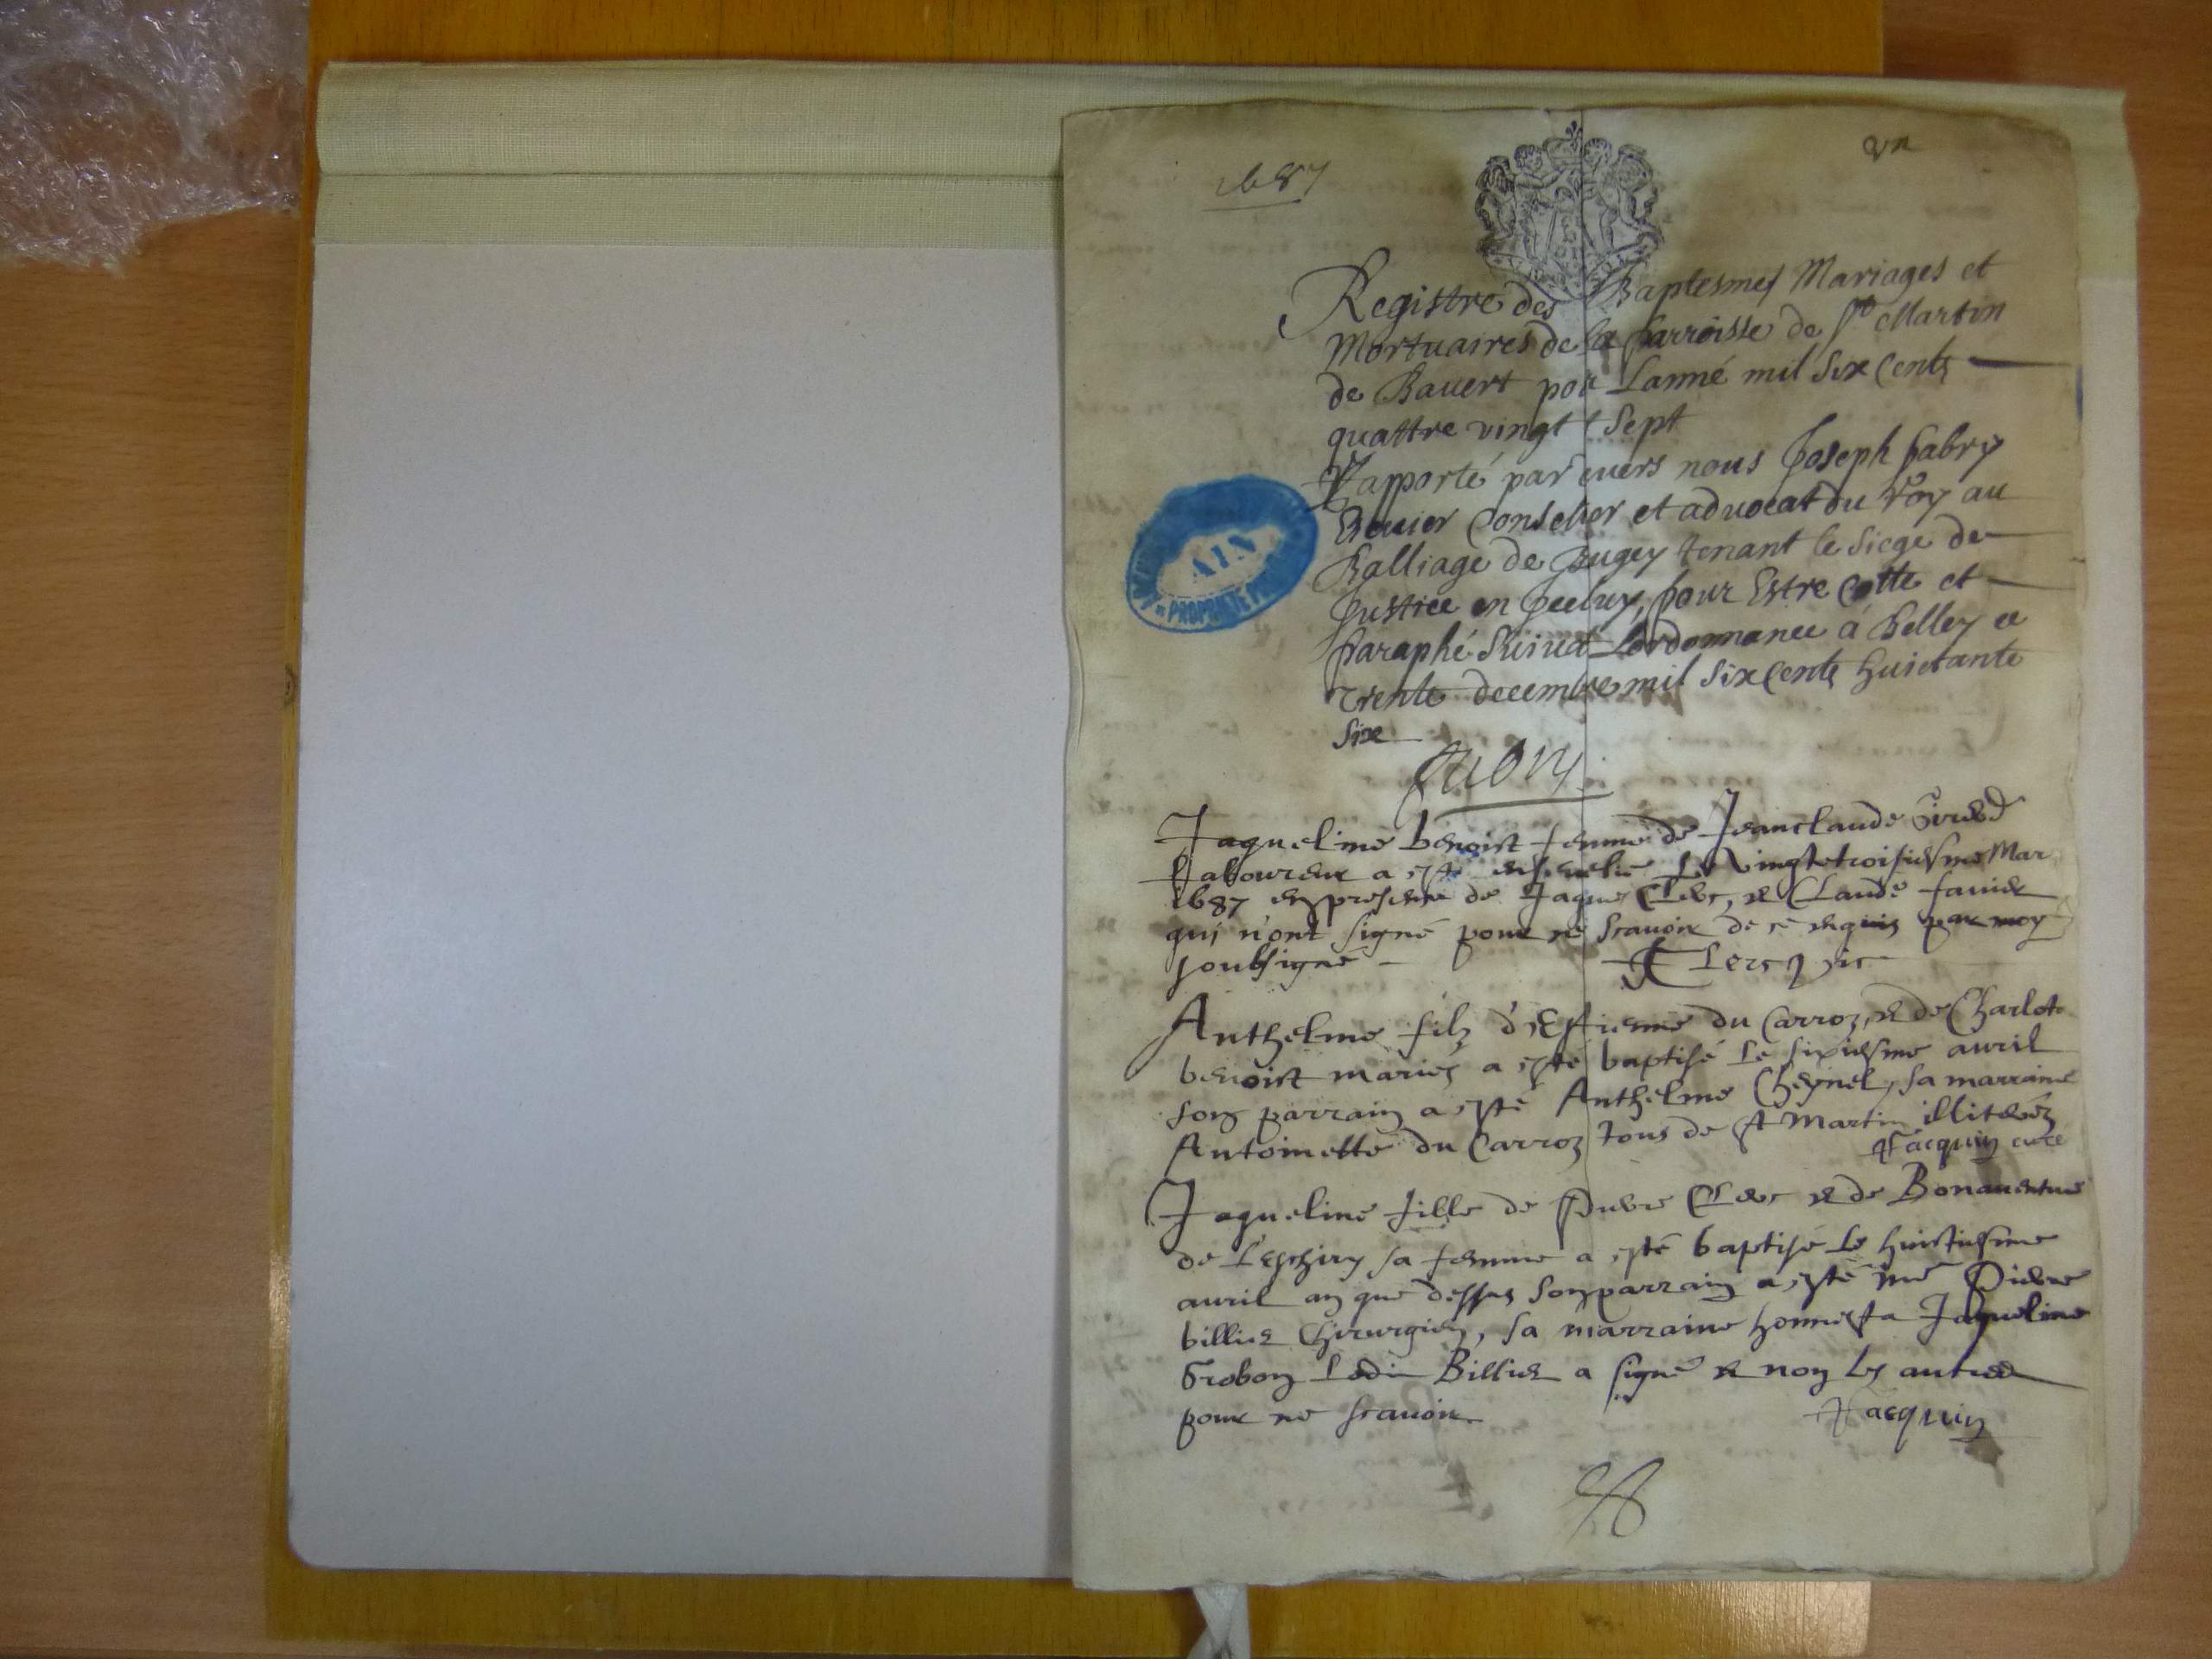 1687
un
Registre des Baptesmes Mariages et
Mortuaires de la parroisse de St Martin
de Bavert pour Lanné mil six cents
quattre vingt sept
Rapporté par evers nous Joseph fabry
Escuier Conselier et advocat du Roy au
Balliage de Bugey tenant le siege de
Justice en Jceluy, pour Estre Cotte et
paraphé suivat Lordonnance à Belley ce
trente decembre mil six cents huictante
six
fabry
Jaqueline benoist femme de Jeanclaude
laboureur a esté ensevelie Le vingtetroisiesme Mar
1687 en presence de Jaque Clerc, & Claude favier
qui n'ont signé pour ne scavoir de ce requis par moy
soubsigne
Clerc vic
Anthelme filz d'Estienne du Carroz, & de Charlot
benoist mariés a esté baptisé Le sixiesme avril
son parrain a esté Anthelme Cheynel, sa marraine
Antoinette du Carroz tous de St Martin illiterez
Jacquin curé
Jaqueline fille de Pierre Clerc & de Bonaventure
de Leschiry sa femme a esté baptisé le huictiesme
avril an que dessus son parrain a esté me Pierre
billiet Chirurgien, sa marraine honneste Jaqueline
Grobon Ledit Billiet a signé & non les autres
pour ne scavoir
Jacquin
AIN
PROPRIETE